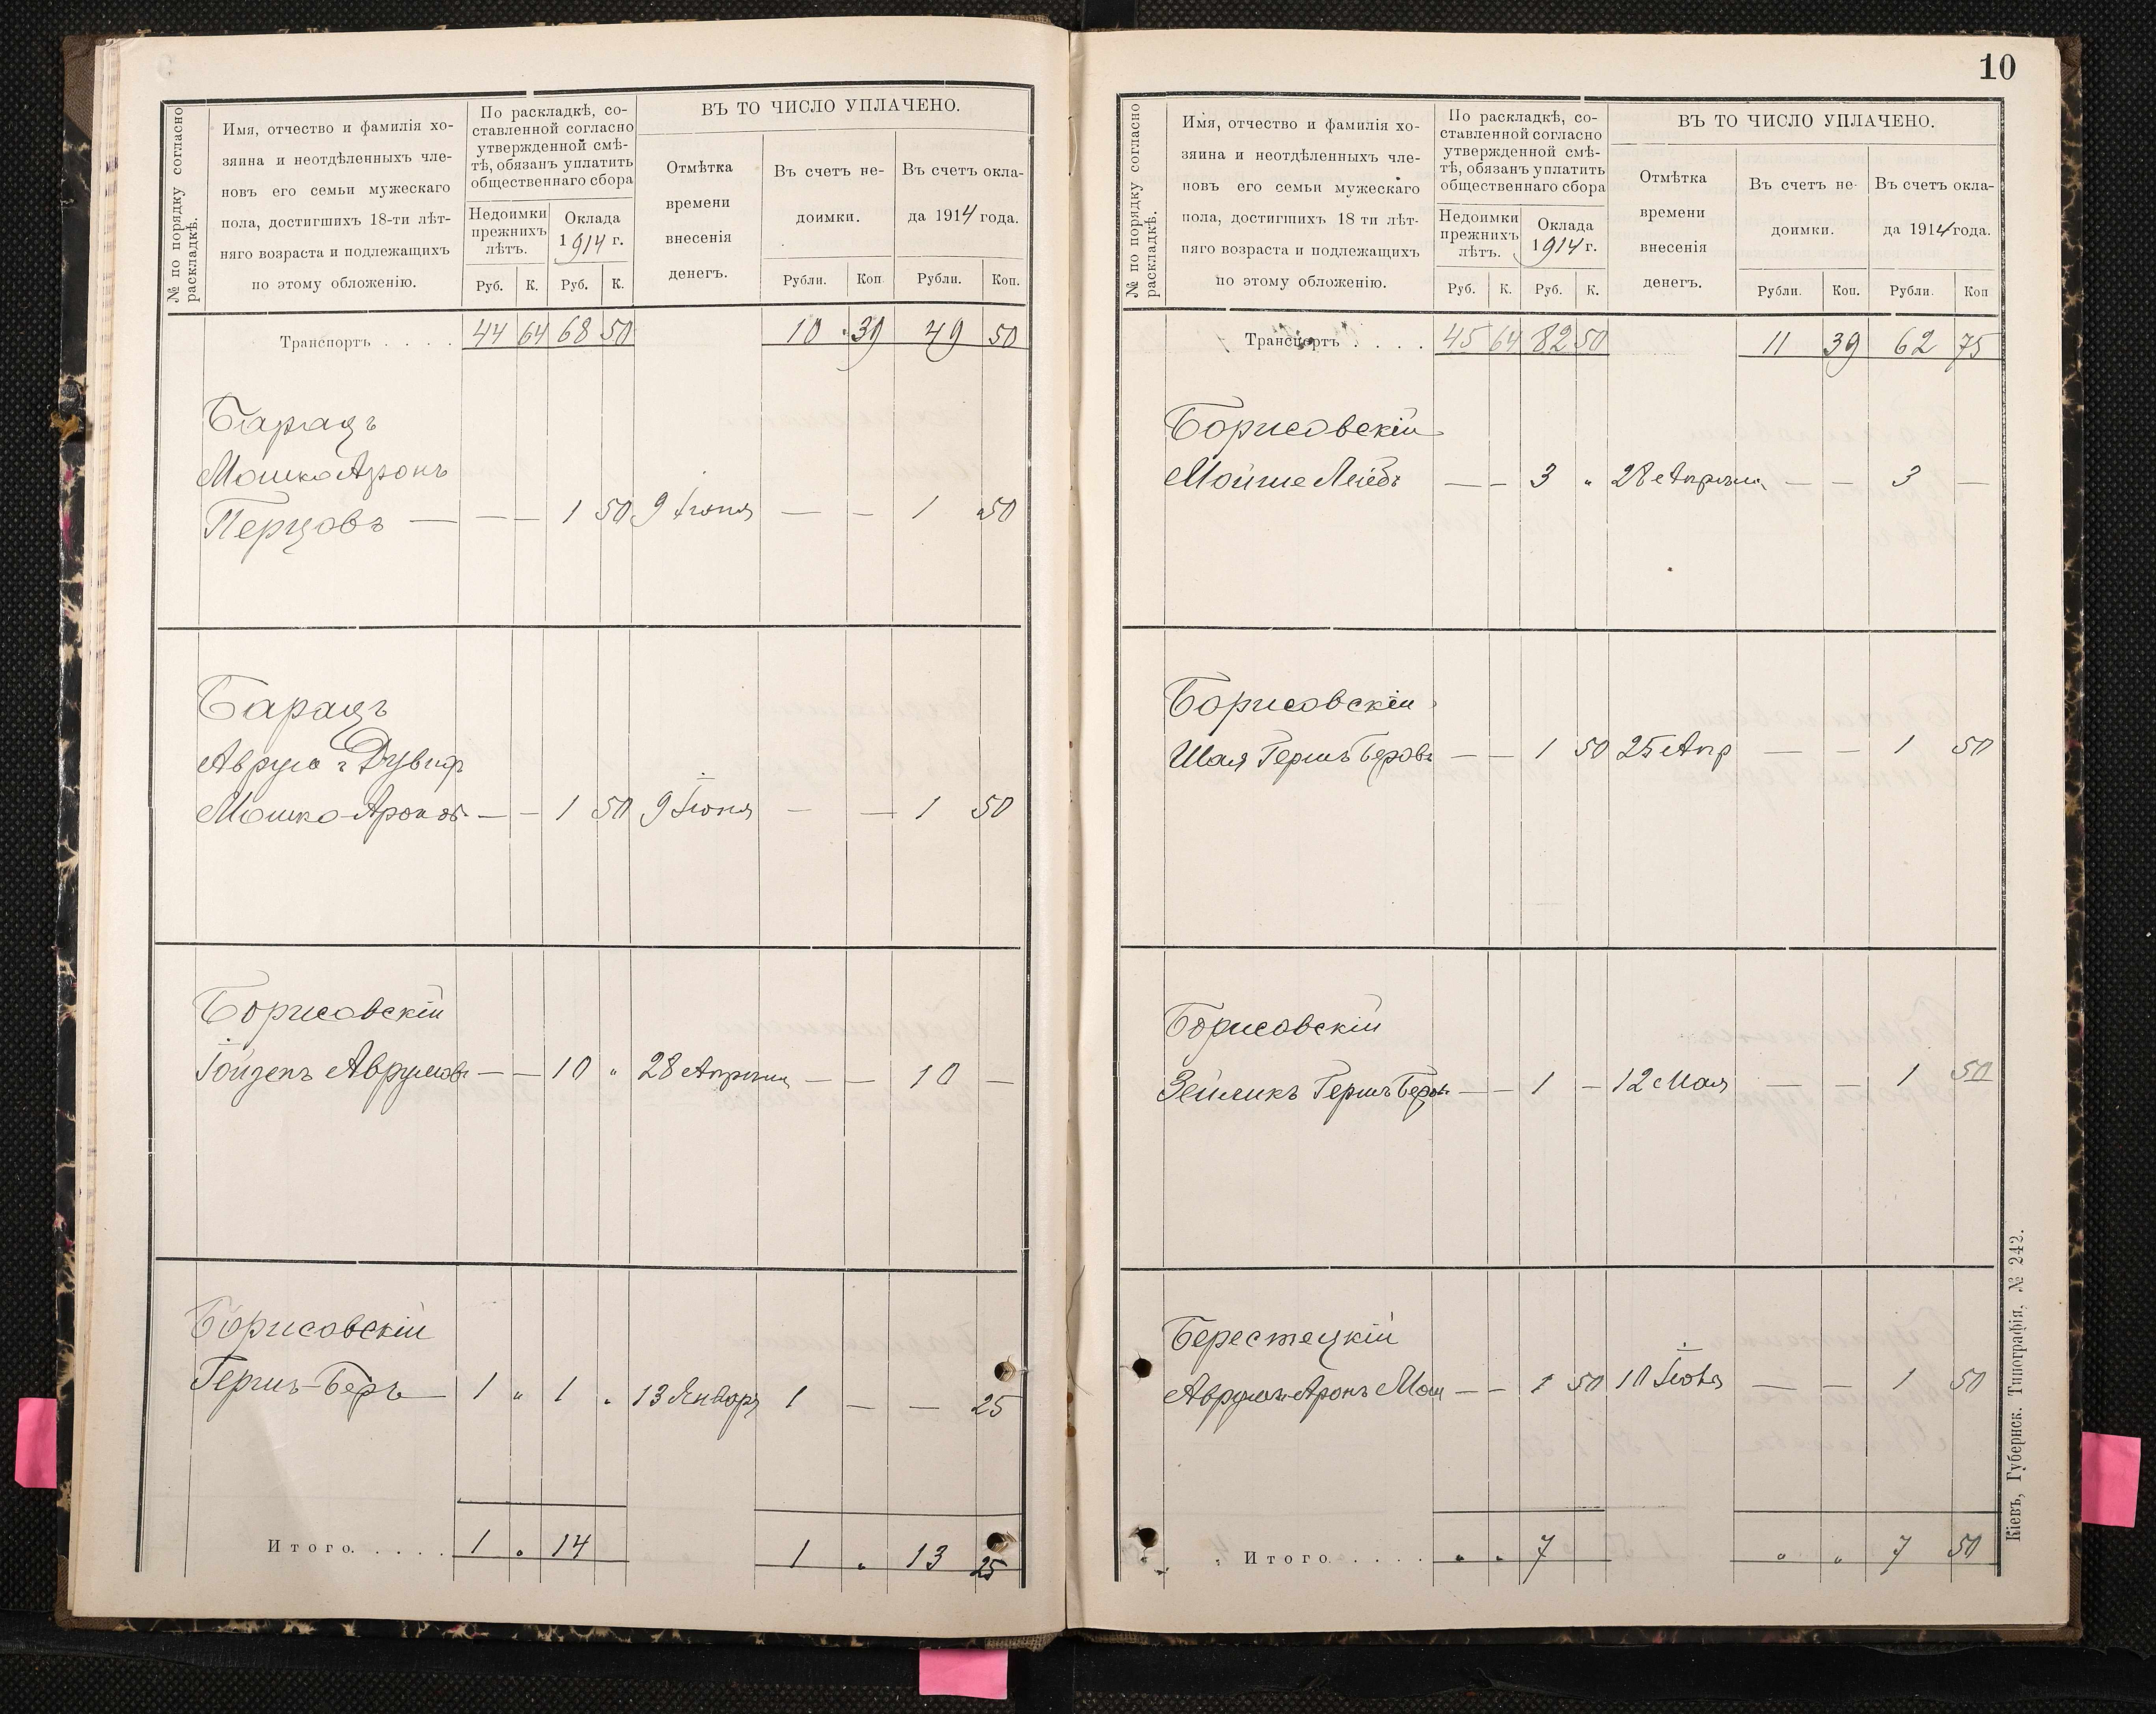 № по порядку согласно
раскладкѣ.
Имя, отчество и фамилія хо-
зяина и неотдѣленныхъ чле-
новъ его семьи мужескаго
пола, достигшихъ 18-ти лѣт-
няго возраста и подлежащихъ
по этому обложенію.
По раскладкѣ, со-
ставленной согласно
утвержденной смѣ-
тѣ, обязанъ уплатить
общественнаго сбора
Недоимки
прежнихъ
лѣтъ.
Оклада
1914 г.
Руб. К. Руб. К.
ВЪ ТО ЧИСЛО УПЛАЧЕНО.
Отмѣтка
времени
внесенія
денегъ.
Въ счетъ не-
доимки.
Въ счетъ окла-
да 1914 года.
Рубли. Коп. Рубли. Коп.
Транспортъ . . . . 44 64 68 50 10 39 49 50
Барацъ
Мошко Аронъ
Перцовъ — — — 1 50 9 Іюня — — 1 50
Барацъ
Аврумъ Дувидъ
Мошко-Ароновъ — — 1 50 9 Іюня — — 1 50
Борисовскій
Іойзепъ Аврумовъ — — 10 „ 28 Апрѣля — — 10 —
Борисовскій
Гершъ-Беръ — 1 „ 1 „ 13 Января 1 — — 25
Итого. . . . . 1 „ 14 1 „ 13 25
10
№ по порядку согласно
раскладкѣ.
Имя, отчество и фамилія хо-
зяина и неотдѣленныхъ чле-
новъ его семьи мужескаго
пола, достигшихъ 18 ти лѣт-
няго возраста и подлежащихъ
по этому обложенію.
По раскладкѣ, со-
ставленной согласно
утвержденной смѣ-
тѣ, обязанъ уплатить
общественнаго сбора
Недоимки
прежнихъ
лѣтъ.
Оклада
1914 г.
Руб. К. Руб. К.
ВЪ ТО ЧИСЛО УПЛАЧЕНО.
Отмѣтка
времени
внесенія
денегъ.
Въ счетъ не-
доимки.
Въ счетъ окла-
да 1914 года.
Рубли. Коп. Рубли. Коп
Транспортъ . . . . 45 64 82 50 11 39 62 75
Борисовскій
Мойше Лейбъ — — 3 „ 28 Апрѣля — — 3 —
Борисовскій
Шая Гершъ Беровъ — — 1 50 25 Апр — — 1 50
Борисовскій
Зейликъ Гершъ Беровъ — — 1 — 12 Мая — — 1 50
Берестецкій
Аврумъ-Аронъ Мош — — 1 50 10 Іюня — — 1 50
Итого. . . . . „ „ 7 „ „ 7 50
Кіевъ, Губернск. Типографія, № 242.